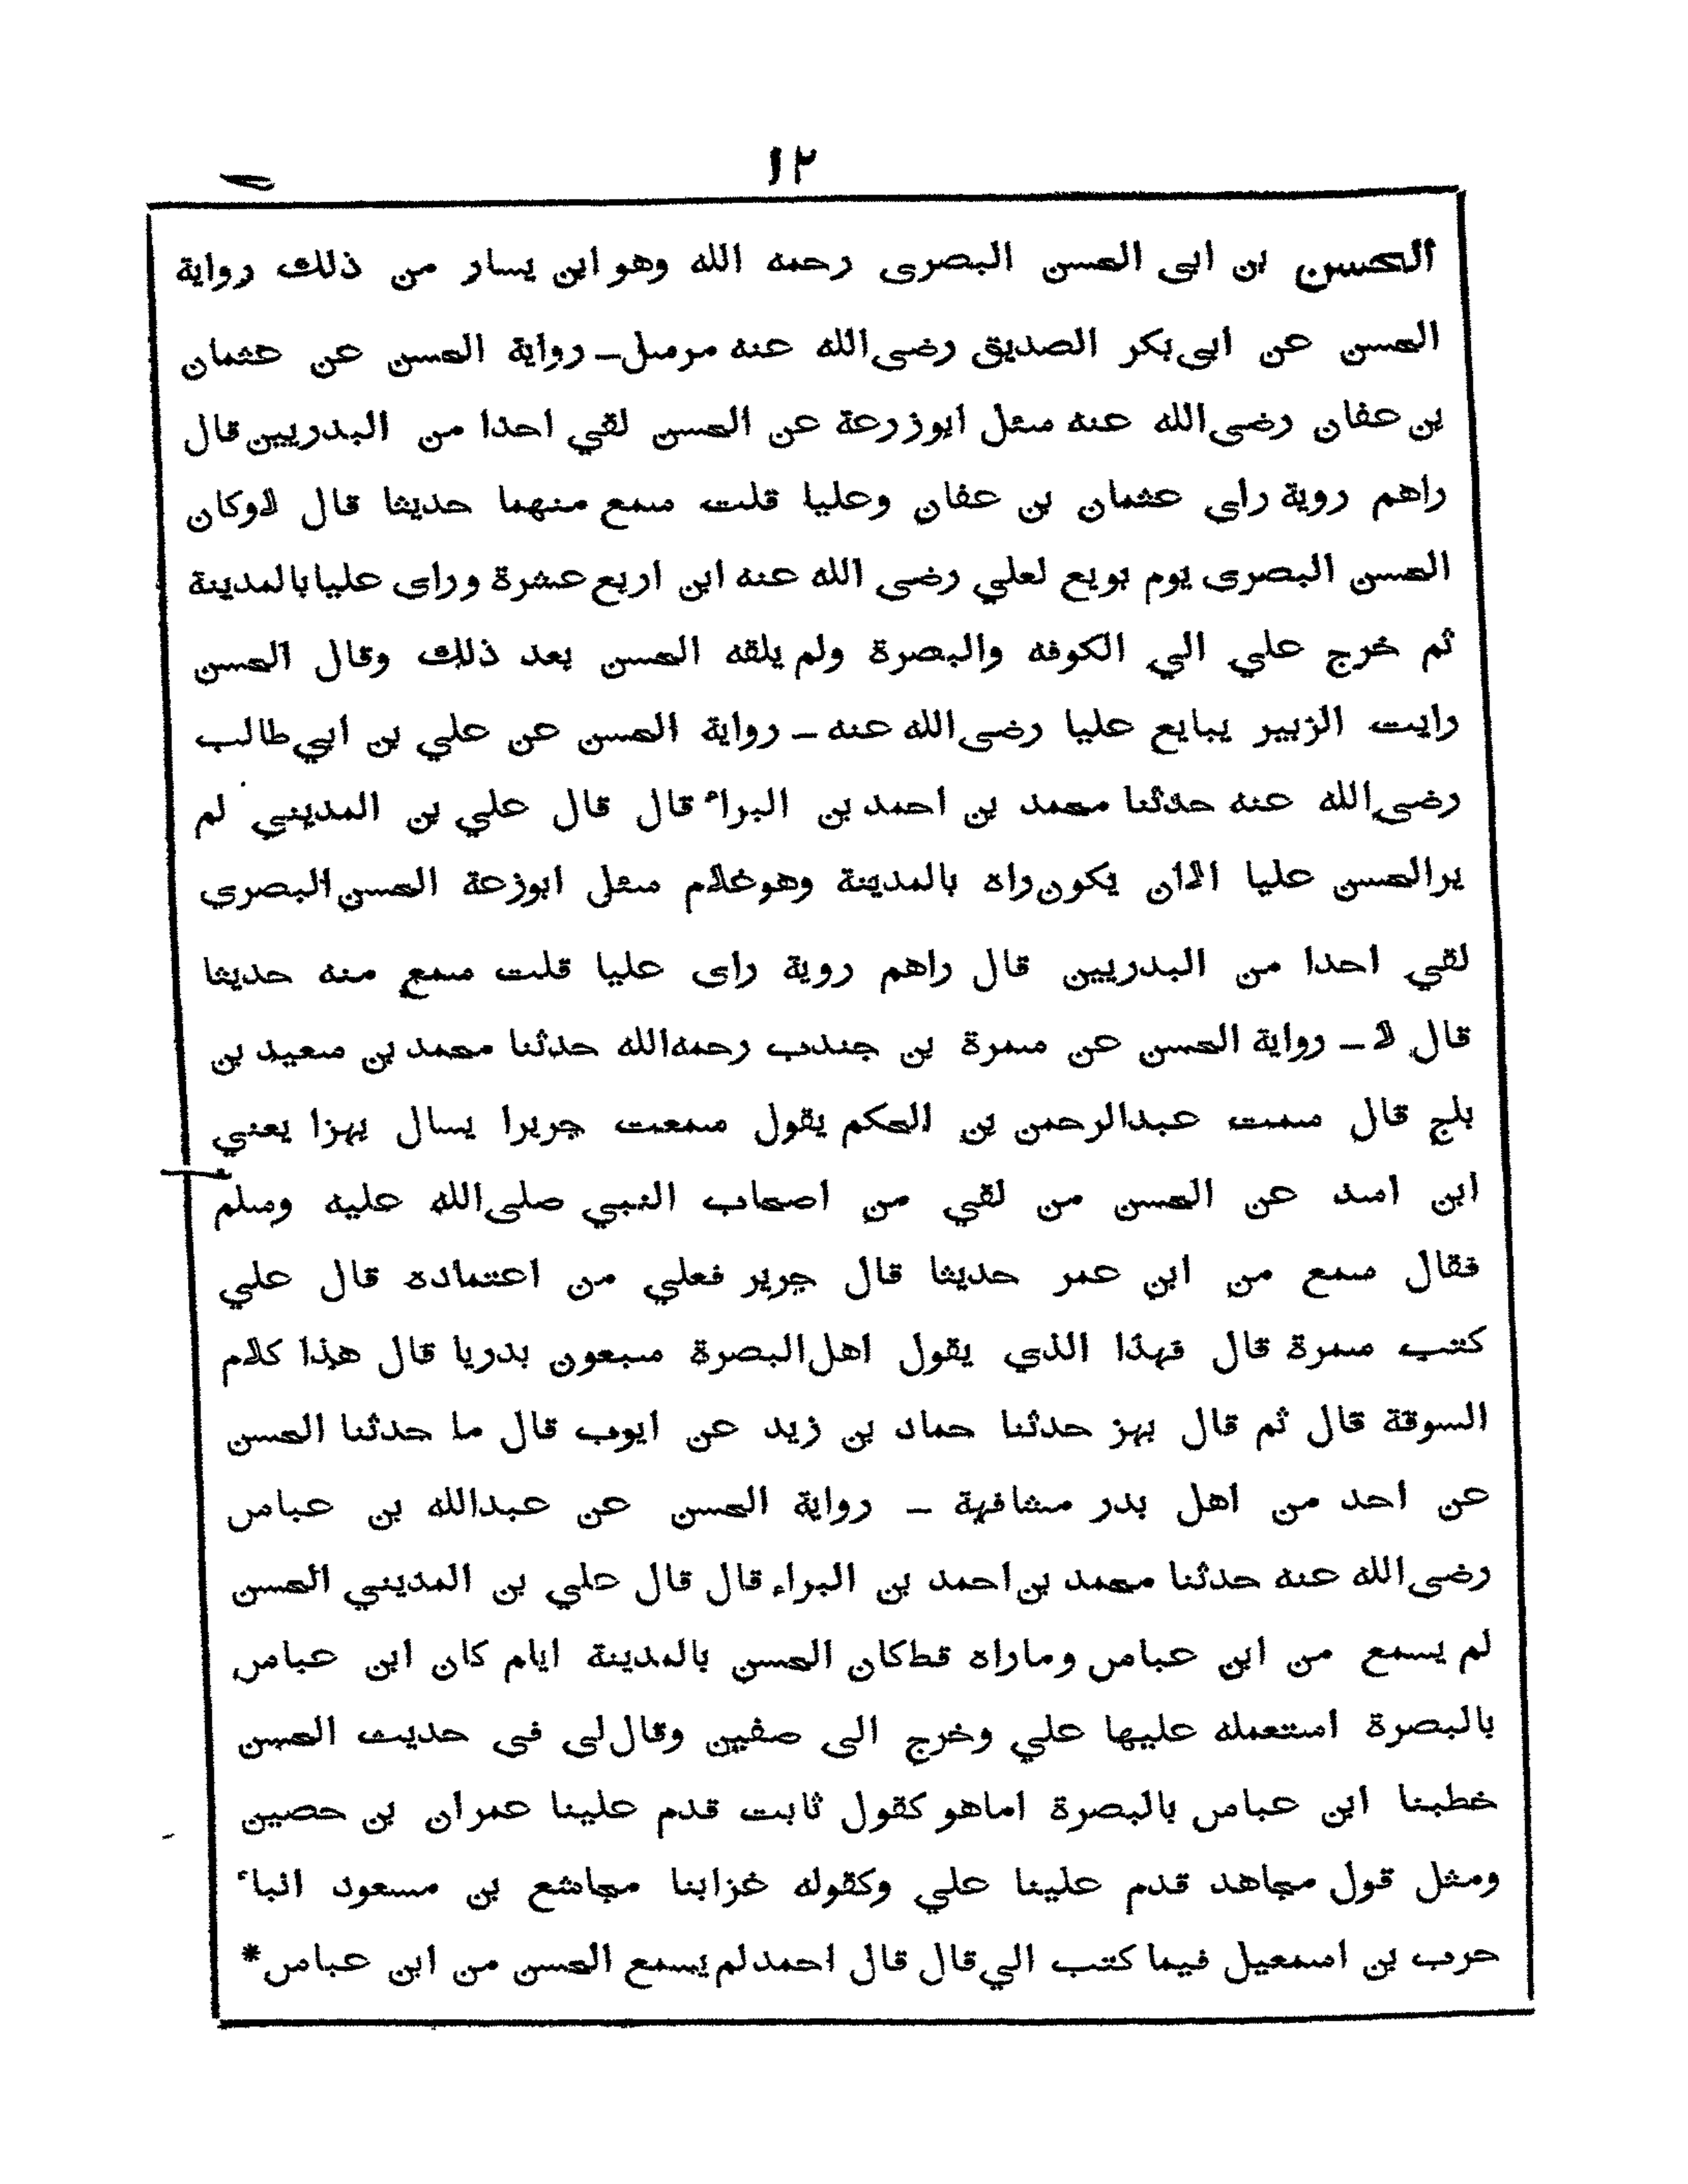 ١٢
الحسن بن ابى الحسن البصرى رحمه الله وهو ابن يسار من ذلك رواية
الحسن عن ابى بكر الصديق رضى الله عنه مرسل ــ رواية الحسن عن عثمان
بن عفان رضى الله عنه سئل ابوزرعة عن الحسن لقي احدا من البدريين قال
راهم روية راى عثمان بن عفان وعليا قلت سمع منهما حديثا قال لاوكان
الحسن البصرى يوم بويع لعلي رضى الله عنه ابن اربع عشرة وراى عليا بالمدينة
ثم خرج علي الي الكوفه والبصرة ولم يلقه الحسن بعد ذلك وقال الحسن
رايت الزبير يبايع عليا رضى الله عنه ــ رواية الحسن عن علي بن ابي طالب
رضى الله عنه حدثنا محمد بن احمد بن البراء قال قال علي بن المديني لم
يرالحسن عليا الاان يكون راه بالمدينة وهو غلام سئل ابوزعة الحسن البصرى
لقي احدا من البدريين قال راهم روية راى عليا قلت سمع منه حديثا
قال لا ــ رواية الحسن عن سمرة بن جندب رحمه الله حدثنا محمد بن سعيد بن
بلج قال سمت عبدالرحمن بن الحكم يقول سمعت جريرا يسال بهزا يعني
ابن اسد عن الحسن من لقي من اصحاب النبي صلى الله عليه وسلم
فقال سمع من ابن عمر حديثا قال جرير فعلي من اعتماده قال علي
كتب سمرة قال فهذا الذي يقول اهل البصرة سبعون بدريا قال هذا كلام
السوقة قال ثم قال بهز حدثنا حماد بن زيد عن ايوب قال ما حدثنا الحسن
عن احد من اهل بدر مشافهة ــ رواية الحسن عن عبدالله بن عباس
رضى الله عنه حدثنا محمد بن احمد بن البراء قال قال علي بن المديني الحسن
لم يسمع من ابن عباس وماراه قط كان الحسن بالمدينة ايام كان ابن عباس
بالبصرة استعمله عليها علي وخرج الى صفين وقال لى فى حديث الحسن
خطبنا ابن عباس بالبصرة اماهو كقول ثابت قدم علينا عمران بن حصين
ومثل قول مجاهد قدم علينا علي وكقوله غزابنا مجاشع بن مسعود انباء
حرب بن اسمعيل فيما كتب الي قال قال احمد لم يسمع الحسن من ابن عباس*